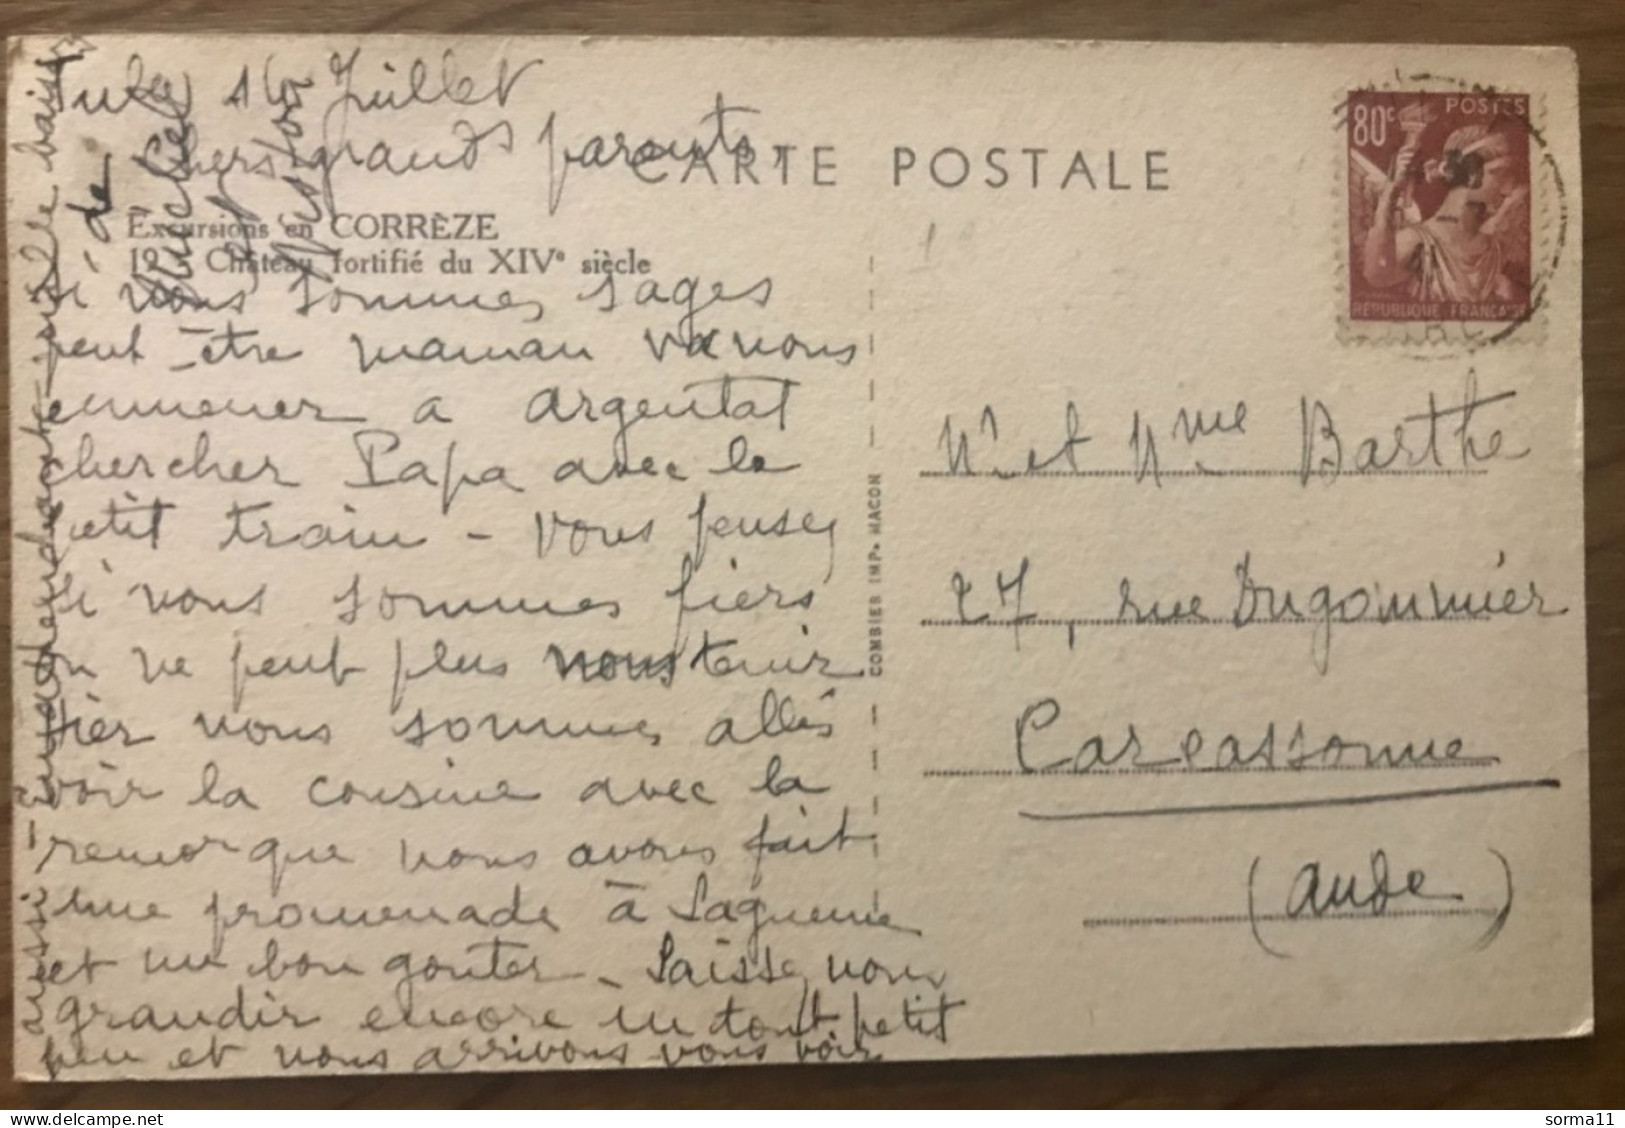 Tulle 16 Juillet
Chers grands parents,
CARTE POSTALE
Excursions en CORRÈZE
Château fortifié du XIVe siècle
Si nous sommes sages
peut-être maman va nous
emmener a argentat
chercher Papa avec le
petit train - Vous pensez
si nous sommes fiers
on ne peut plus nous tenir
Hier nous sommes allés
voir la cousine avec la
remorque nous avons fait
une promenade à Laguenne
et un bon gouter - Laissez nous
grandir encore un tout petit
peu et nous arrivons vous voir
aussi - En attendant
baisers
de
Michel
et
Nistou
80c
POSTES
RÉPUBLIQUE FRANÇAISE
COMBIER IMP. MACON
Mr et Mme Barthe
27, rue Dugommier
Carcassonne
(Aude)
sorma11